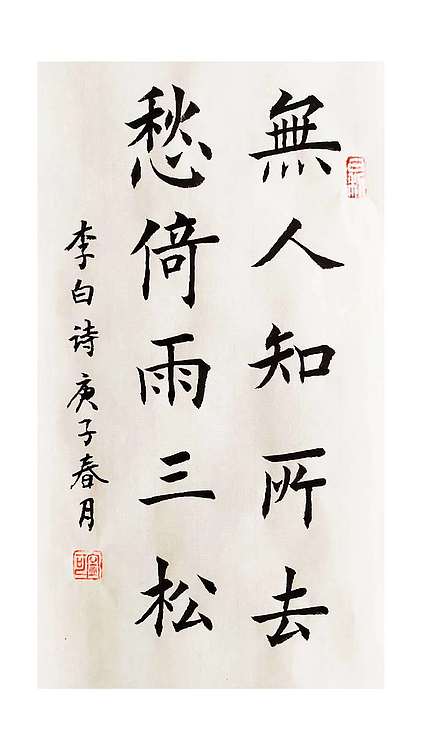 無人知所去
愁倚雨三松
李白诗庚子春月